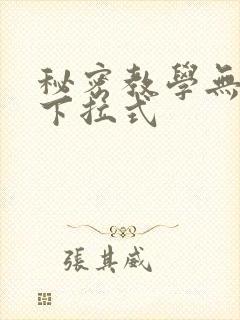 秘密教學無
下拉式
張其威